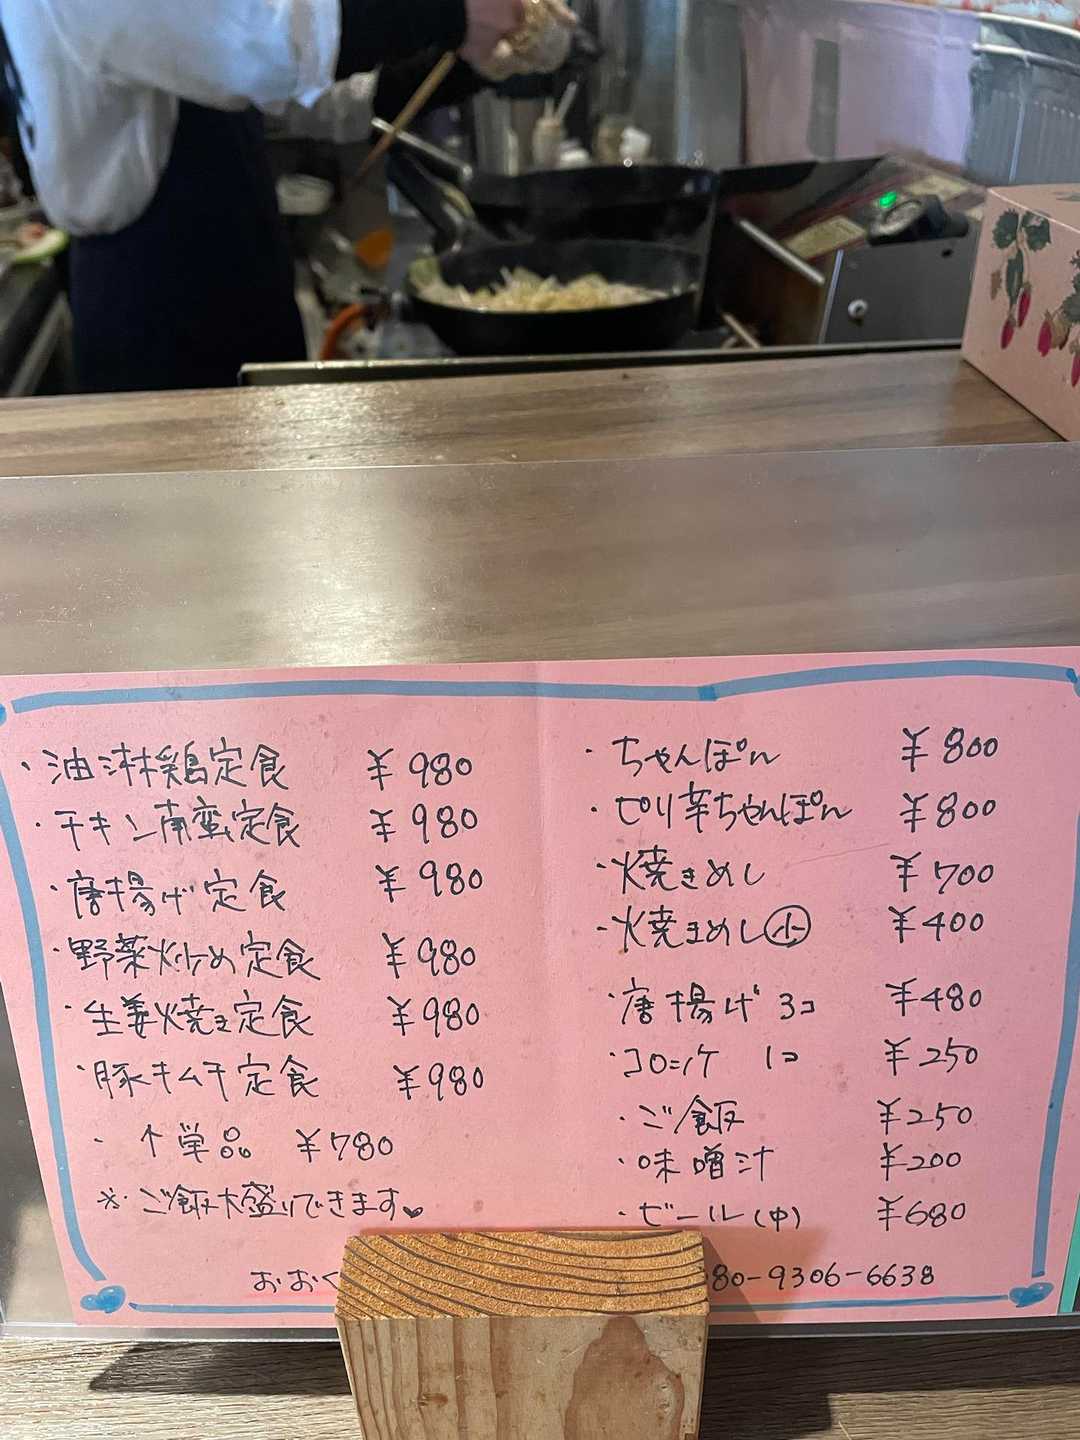 ・油淋鶏定食 ¥980
・チキン南蛮定食 ¥980
・唐揚げ定食 ¥980
・野菜炒め定食 ¥980
・生姜焼き定食 ¥980
・豚キムチ定食 ¥980
・↑単品 ¥780
※・ご飯大盛りできます♥
・ちゃんぽん ¥800
・ピリ辛ちゃんぽん ¥800
・焼きめし ¥700
・焼きめし㊙小 ¥400
・唐揚げ 3コ ¥480
・コロッケ 1コ ¥250
・ご飯 ¥250
・味噌汁 ¥200
・ビール(中) ¥680
おおく 80-9306-6638